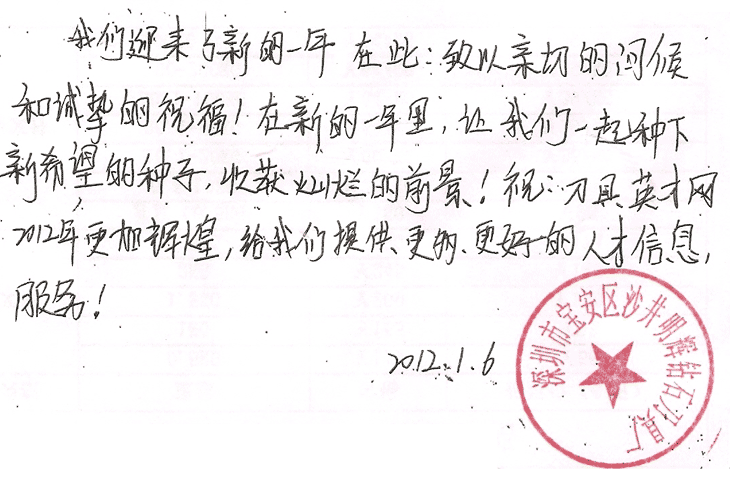 我们迎来了新的一年 在此:致以亲切的问候
和诚挚的祝福!在新的一年里,让我们一起种下
新希望的种子,收获灿烂的前景!祝:刀具英才网
2012年更加辉煌,给我们提供更多、更好的人才信息,
服务!
2012.1.6
深圳市宝安区沙井明辉钻石刀具厂